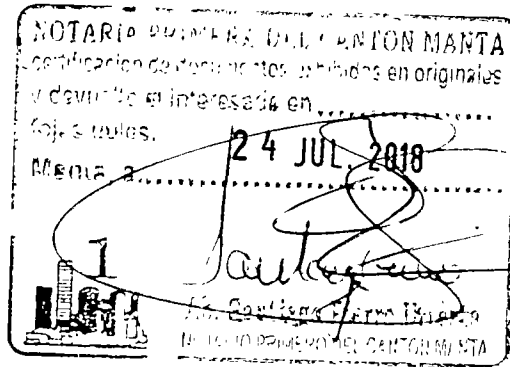 NOTARIA PRIMERA DEL CANTON MANTA
certificación de documentos exhibidos en originales
y devuelto al interesado en
fojas utiles.
Manta, a
24 JUL. 2018
1
Ab. Santiago
NOTARIO PRIMERO DEL CANTON MANTA